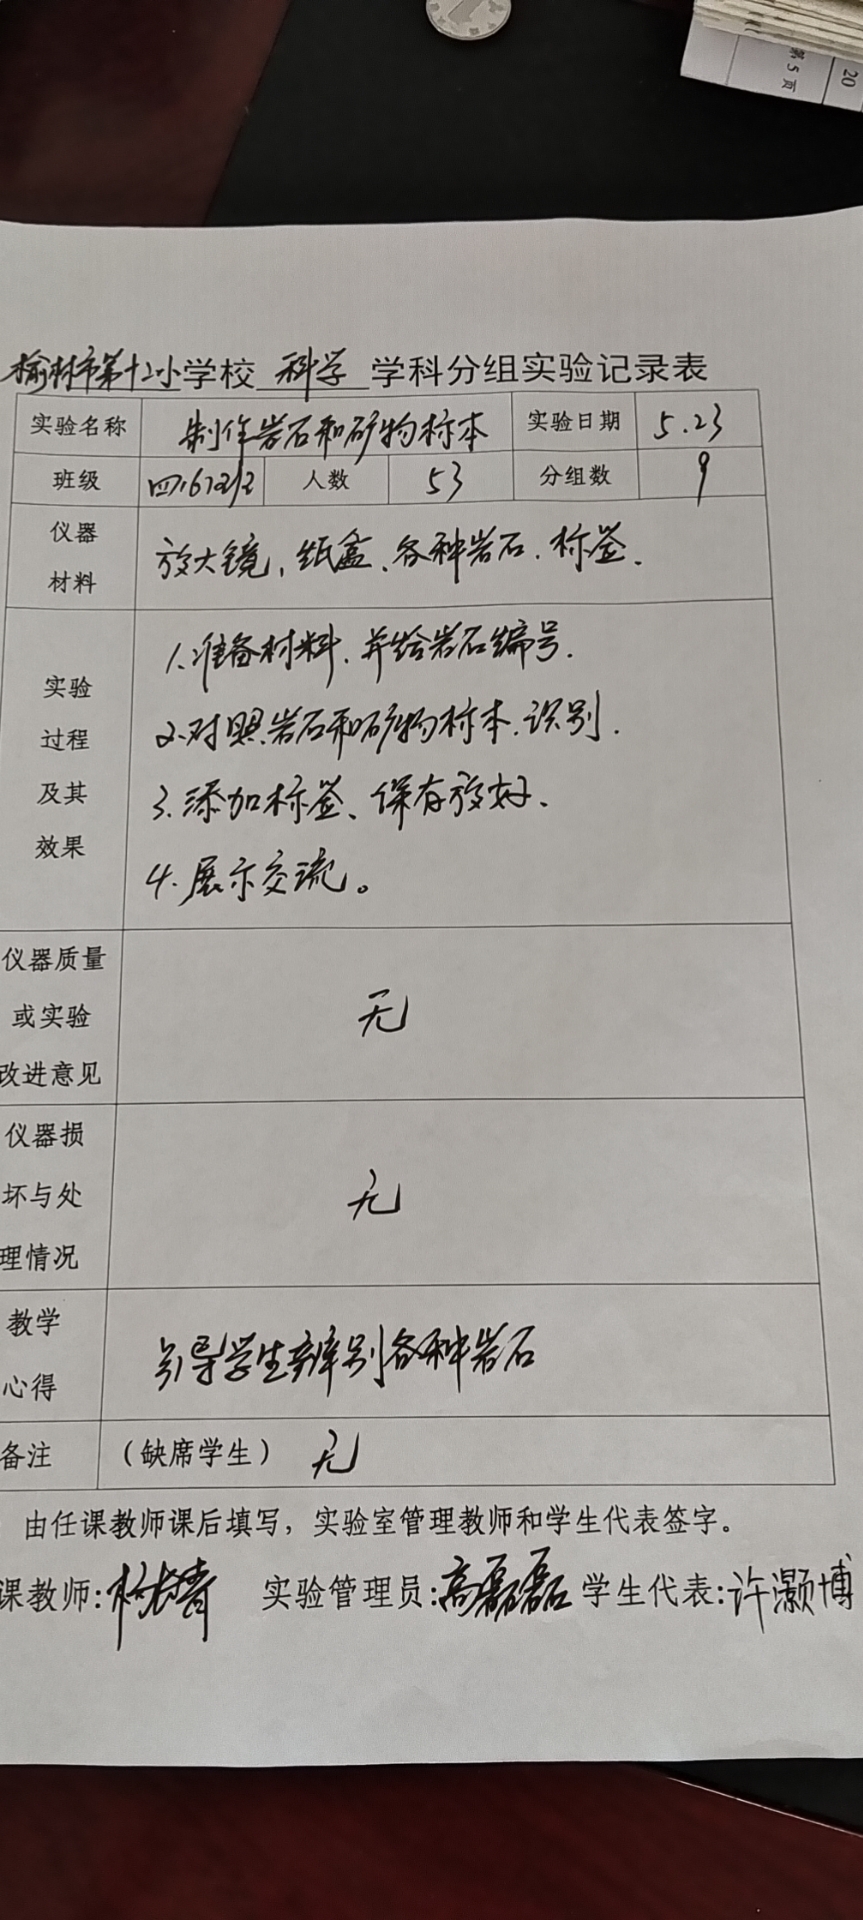 20
第5页
榆林市第十二小学校 科学 学科分组实验记录表
实验名称 制作岩石和矿物标本 实验日期 5.23
班级 人数 53 分组数 9
仪器材料 放大镜、纸盒、各种岩石、标签.
实验过程及其效果
1.准备材料、并给岩石编号.
2.对照岩石和矿物标本、识别.
3.添加标签、保存放好、
4.展示交流。
仪器质量或实验改进意见 无
仪器损坏与处理情况 无
教学心得 引导学生辨别各种岩石
备注 (缺席学生) 无
由任课教师课后填写，实验室管理教师和学生代表签字。
课教师: 实验管理员:高磊磊 学生代表:许灏博